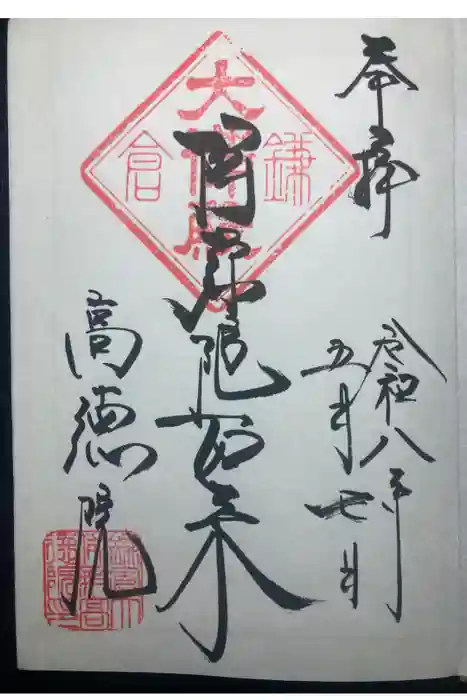 奉拝
令和八年
五月七日
鎌倉
大佛殿
阿弥陀如来
高徳院